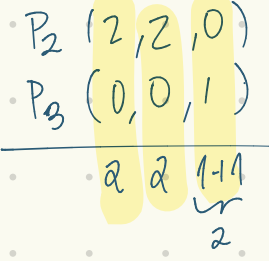 P2 (2,2,0)
P3 (0,0,1)
2 2 1+1
2